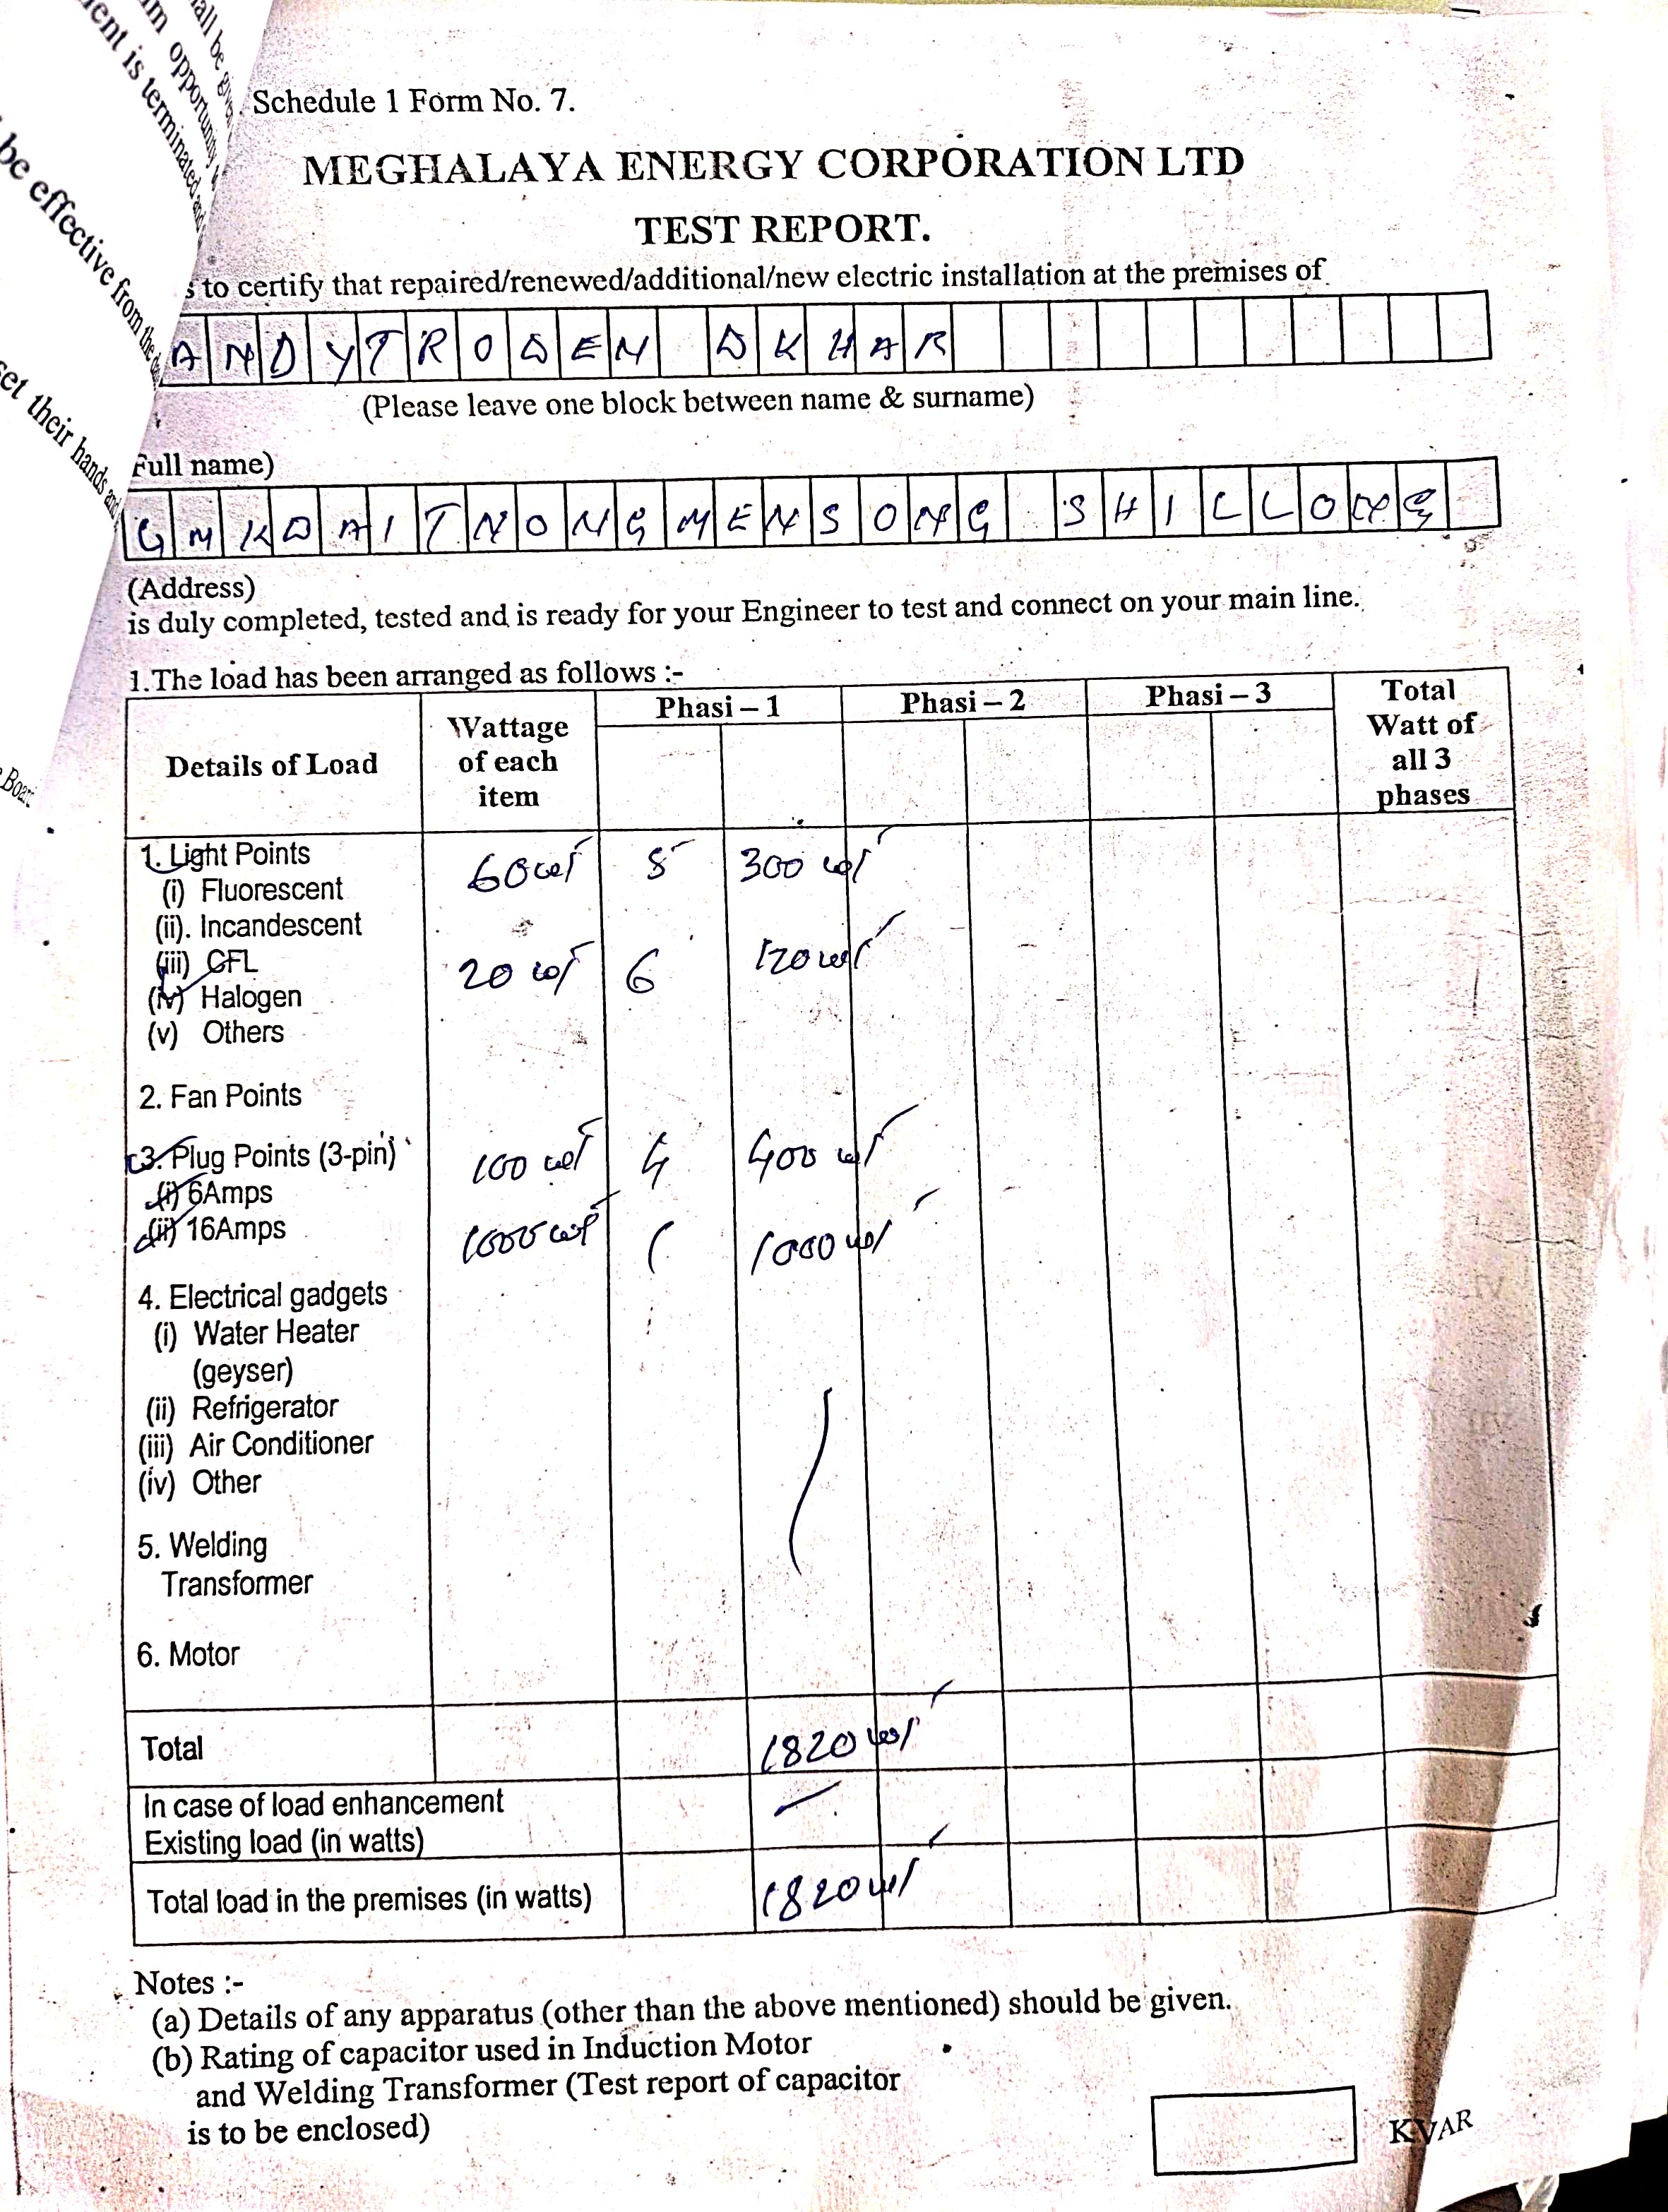 all be given
m opportunity
ent is terminated and
be effective from the
set their hands and
Boar
Schedule 1 Form No. 7.
MEGHALAYA ENERGY CORPORATION LTD
TEST REPORT.
s to certify that repaired/renewed/additional/new electric installation at the premises of
ANDYTRODEN DKHAR
(Please leave one block between name & surname)
Full name)
UMKDAITNONGMENSONG SHILLONG
(Address)
is duly completed, tested and is ready for your Engineer to test and connect on your main line.
1.The load has been arranged as follows :-
Details of Load Wattage of each item Phasi – 1 Phasi – 2 Phasi – 3 Total Watt of all 3 phases
1. Light Points 60 wt 5 300 wt
(i) Fluorescent
(ii). Incandescent
(iii) CFL 20 wt 6 120 wt
(iv) Halogen
(v) Others
2. Fan Points
3. Plug Points (3-pin) 100 wt 4 400 wt
(i) 6Amps
(ii) 16Amps 1000 wt 1 1000 wt
4. Electrical gadgets
(i) Water Heater
(geyser)
(ii) Refrigerator
(iii) Air Conditioner
(iv) Other
5. Welding
Transformer
6. Motor
Total 1820 wt
In case of load enhancement
Existing load (in watts)
Total load in the premises (in watts) 1820 wt
Notes :-
(a) Details of any apparatus (other than the above mentioned) should be given.
(b) Rating of capacitor used in Induction Motor
and Welding Transformer (Test report of capacitor
is to be enclosed)
KVAR